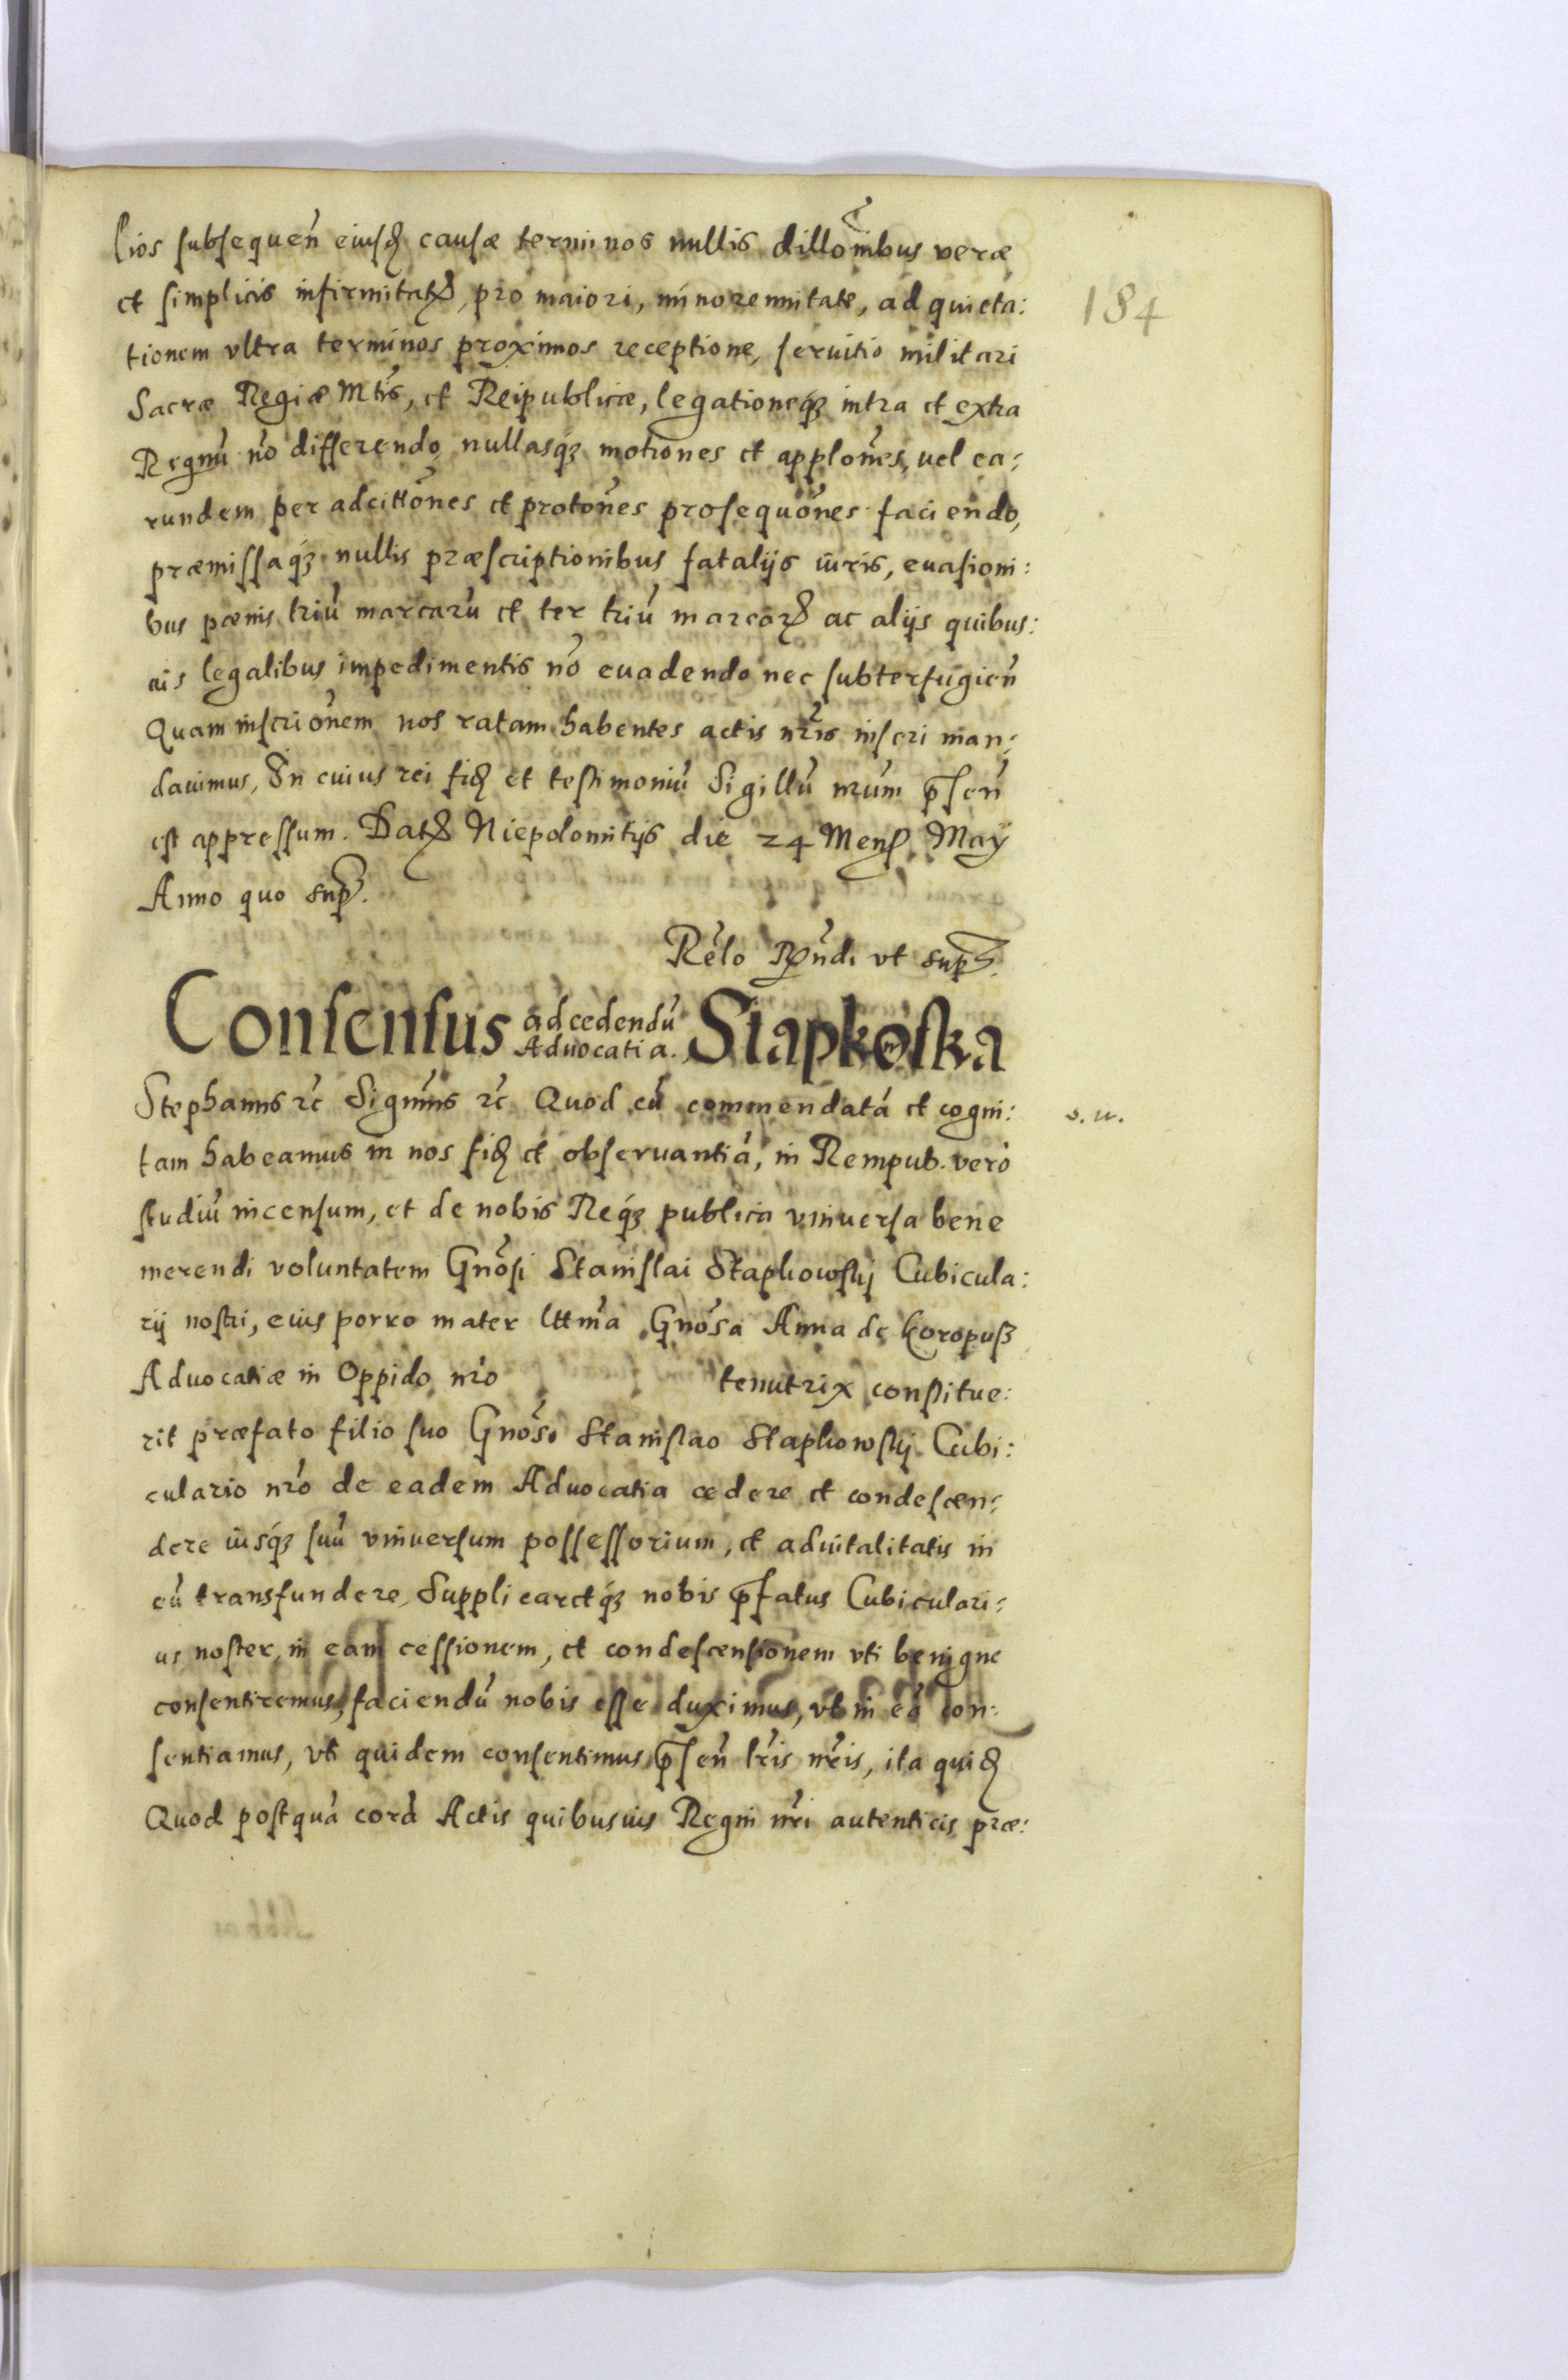 lios subsequeñ eiusdẽ causæ terminos nullis dillõnibus veræ
et simplicis infirmitatꝭ, pro maiori, minorennitate, ad quieta:
184
tionem vltra terminos proximos receptione, seruitio militari
Sacræ Regiæ Mtis, et Reipublicæ, legationeqꝫ intra et extra
Regnũ nõ differendo, nullasqꝫ motiones et applões, vel ea:
rundem per adcittões et protões prosequões faciendo,
præmissaqꝫ nullis præscriptionibus fatalijs iuris, euasioni:
bus pœnis triũ marcarũ et ter triũ marcarꝝ ac alijs quibus:
uis legalibus impedimentis nõ euadendo nec subterfugieñ
Quam inscriõnem nos ratam habentes actis nr̃is inseri man:
dauimus, In cuius rei fidẽ et testimoniũ Sigillũ nr̃um p̃señ
est appressum. Datꝭ Niepolomitijs die 24 Mensꝭ May
Anno quo supꝭ.
Re͂lo Rꝑñdi vt supꝭ.
Consensus ad cedendũ Advocatia. Stapkoska
Stephanus ꝛc̃ Signim̃us ꝛc̃ Quod cũ commendatã et cogni:
s. w.
tam habeamus in nos fidẽ et obseruantiã, in Rempub. verò
studiũ incensum, et de nobis Reqꝫ publica vniuersa bene
merendi voluntatem Gnõsi Stanislai Stapkowskij Cubicula:
rij nostri, eius porro mater lttm̃a Gnõsa Anna de Koropuß
Aduocatiæ in Oppido nr̃o tenutrix constitue:
rit præfato filio suo Gnõso Stanislao Stapkowskij Cubi:
culario nr̃o de eadem Aduocatia cedere et condescen:
dere iusqꝫ suũ vniuersum possessorium, et aduitalitatis in
eũ transfundere, Supplicaretqꝫ nobis p̃fatus Cubiculari:
us noster, in eam cessionem, et condescensionem vti benigne
consentiremus, faciendũ nobis esse duximus, vt in eã con:
sentiamus, vti quidem consentimus p̃señ lr̃is nr̃is, ita quidẽ
Quod postquã corã Actis quibusuis Regni nr̃i autenticis præ: